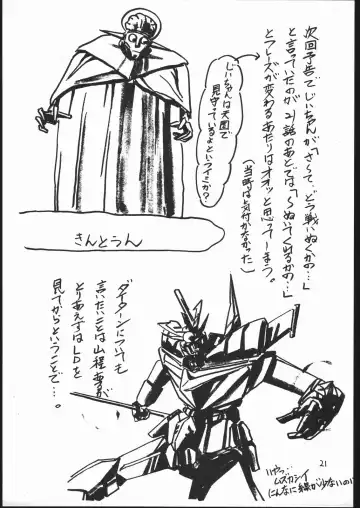 次回予告でじいちゃんが「さ〜て、どう戦いぬくかの…」
と言っていたのが21話のあとでは「〜ぬいてくれるかの…」
とフレーズが変わるあたりはオオッと思ってしまう。
(当時は気付かなかった)
じいちゃんは天国で
見守っているよというイミか?
きんとうん
ダイターンについても
言いたいことは山程あるが
とりあえずはLDを
見てからということで…。
21
いやっ…
ムズカシイ
こんなに線が少ないのに